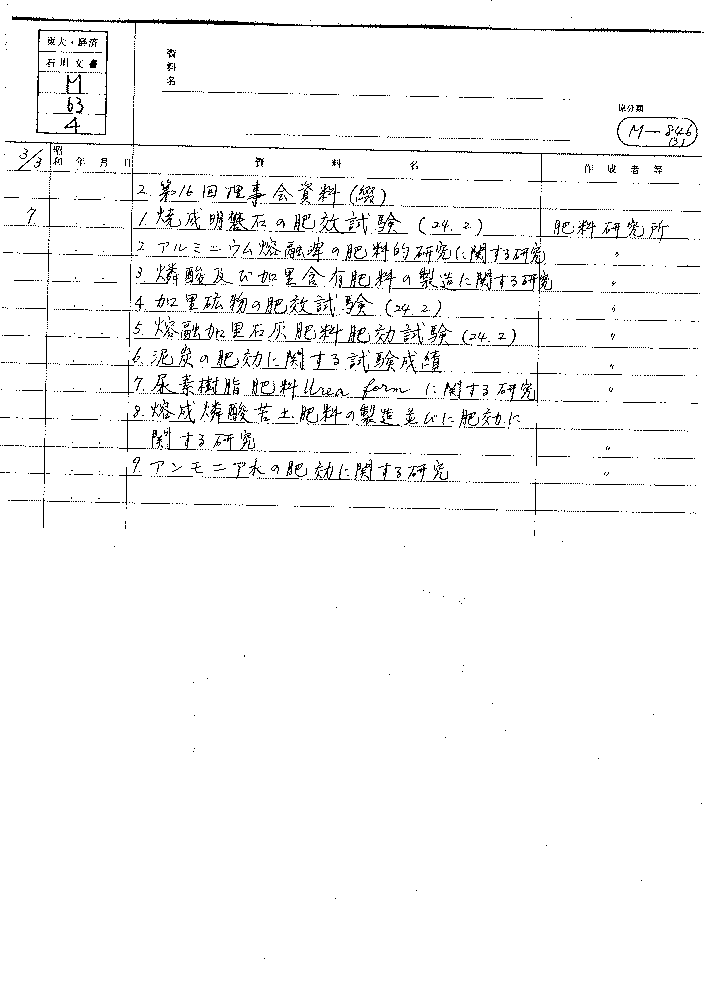 東大・経済
石川文書
M
63
4
資料名
原分類
M-846
(3)
3/3 昭和 年 月 日 資料名 作成者等
2. 第16回理事会資料(綴)
7 1. 焼成明礬石の肥效試験 (24.2) 肥料研究所
2. アルミニウム熔融滓の肥料的研究に関する研究 〃
3. 燐酸及び加里含有肥料の製造に関する研究 〃
4. 加里砿物の肥效試験 (24.2) 〃
5. 熔融加里石灰肥料肥効試験 (24.2) 〃
6. 泥炭の肥効に関する試験成績 〃
7. 尿素樹脂肥料 Urea form に関する研究 〃
8. 熔成燐酸苦土肥料の製造並びに肥効に
関する研究 〃
9. アンモニア水の肥効に関する研究 〃